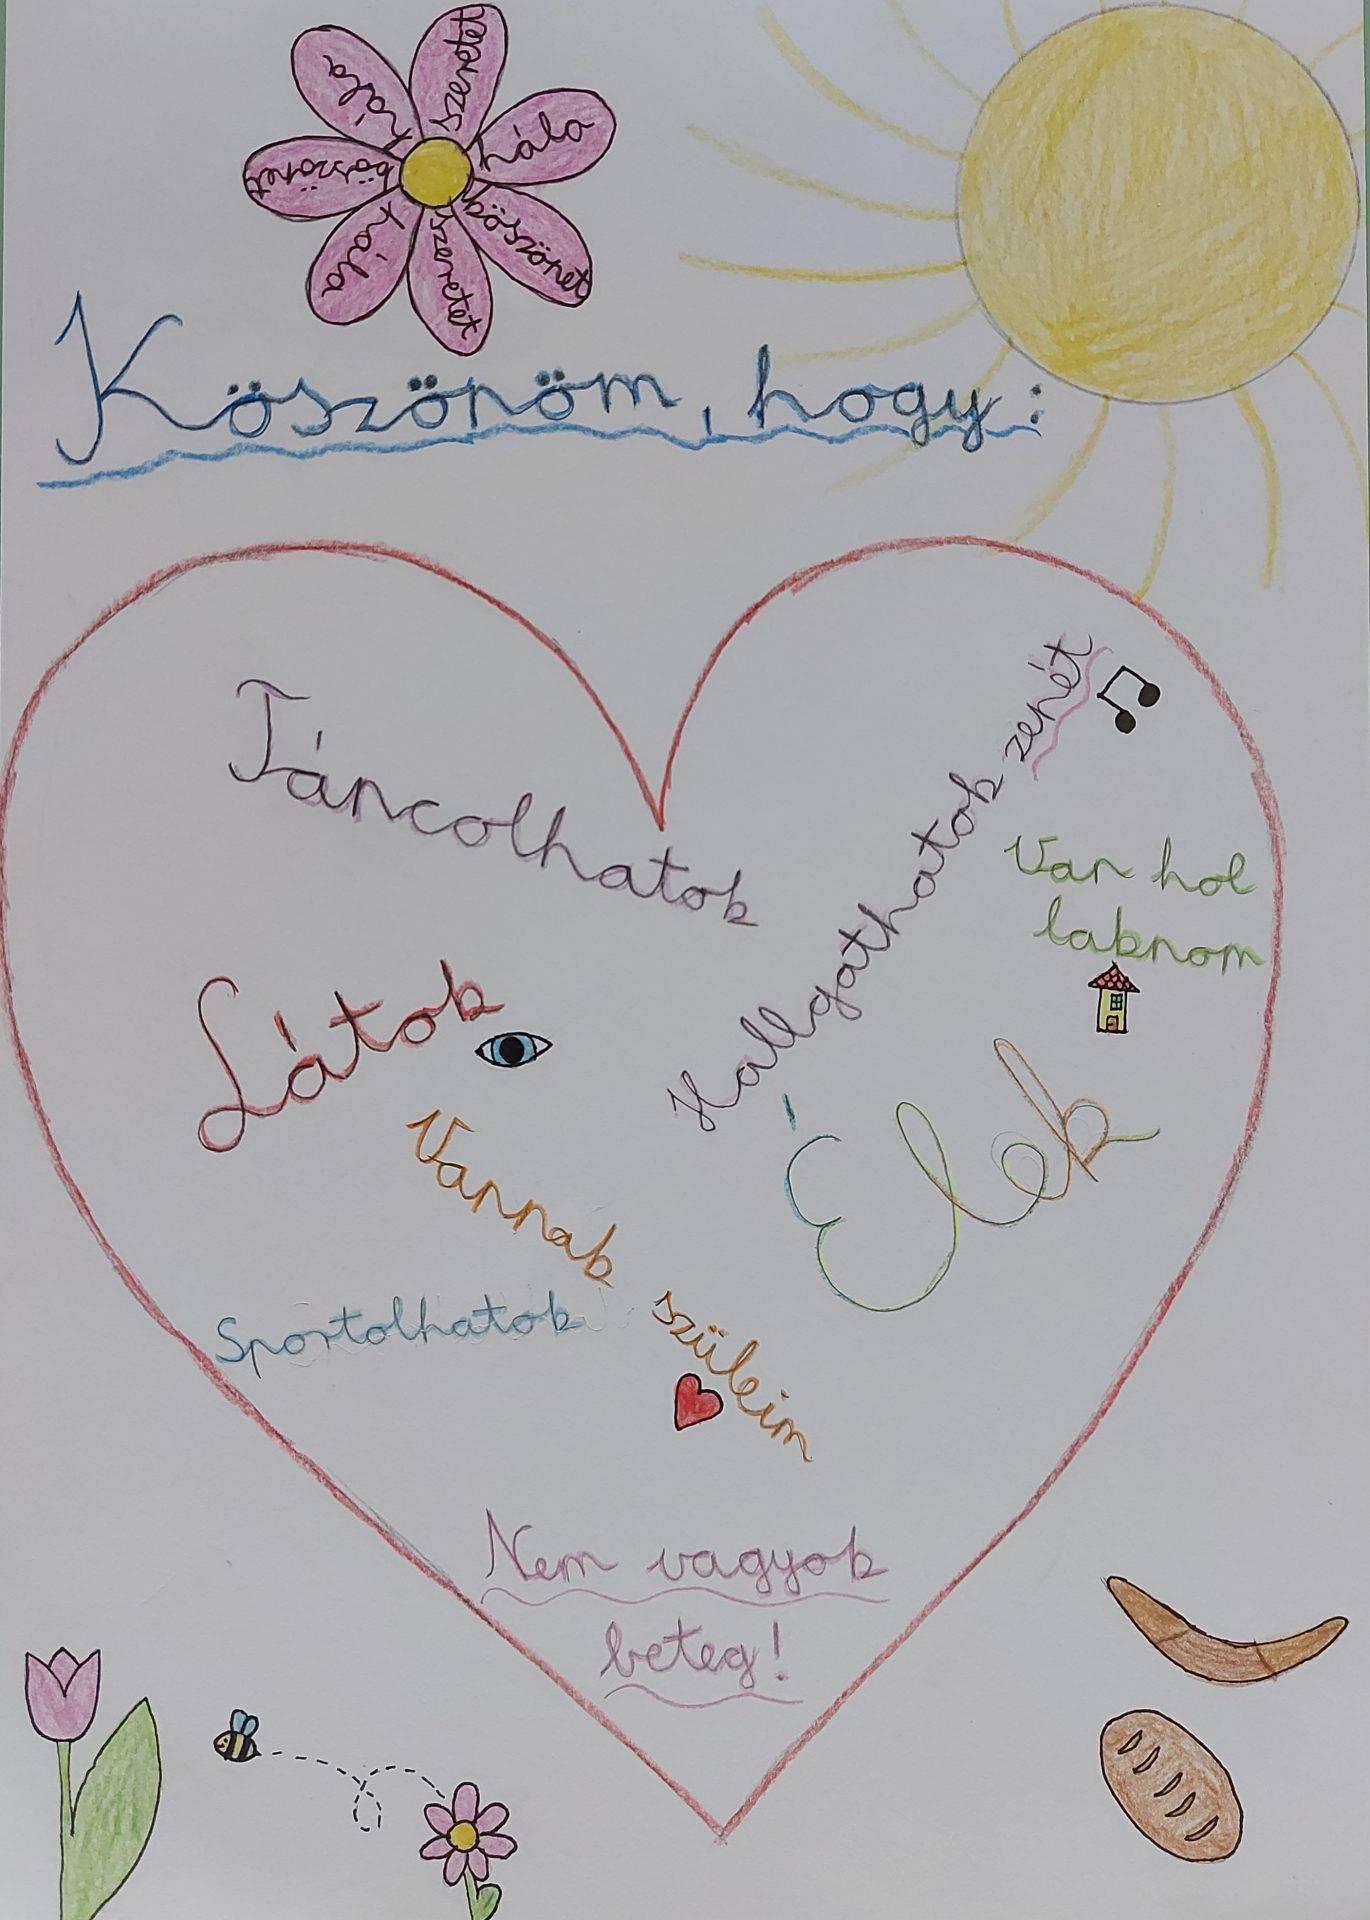 szeretet
hála
köszönet
szeretet
hála
köszönet
hála
Köszönöm, hogy:
Táncolhatok
Hallgathatok zenét
Van hol
laknom
Látok
Élek
Vannak szüleim
Sportolhatok
Nem vagyok
beteg!